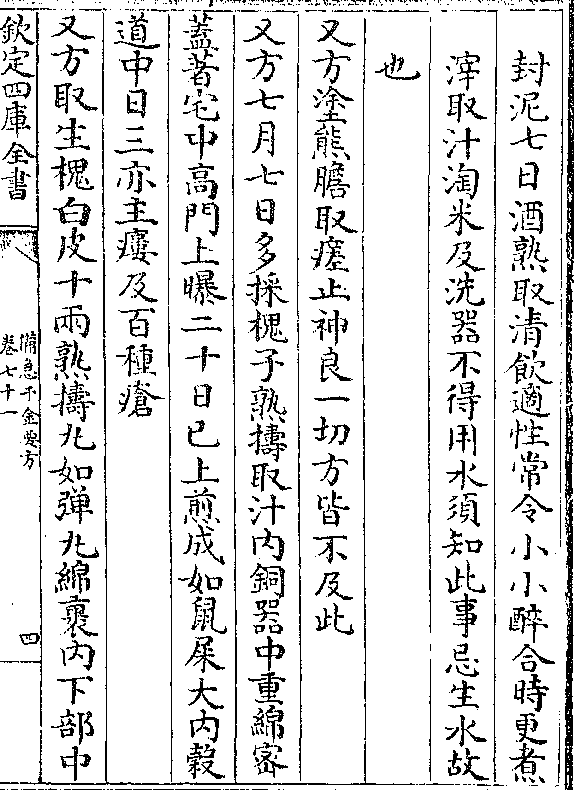 封泥七日酒熟取清飲適性常令小小醉合時更煮
滓取汁淘米及洗器不得用水須知此事忌生水故
也
又方塗熊膽取瘥止神良一切方皆不及此
又方七月七日多採槐子熟擣取汁内銅器中重綿密
蓋著宅中高門上曝二十日已上煎成如鼠屎大内穀
道中日三亦主瘻及百種瘡
又方取生槐白皮十兩熟擣丸如彈丸綿裹内下部中
欽定四庫全書
備急千金要方
卷七十一
四